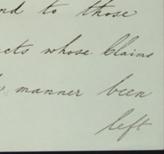 nd to those
cts whose claims
manner been
left